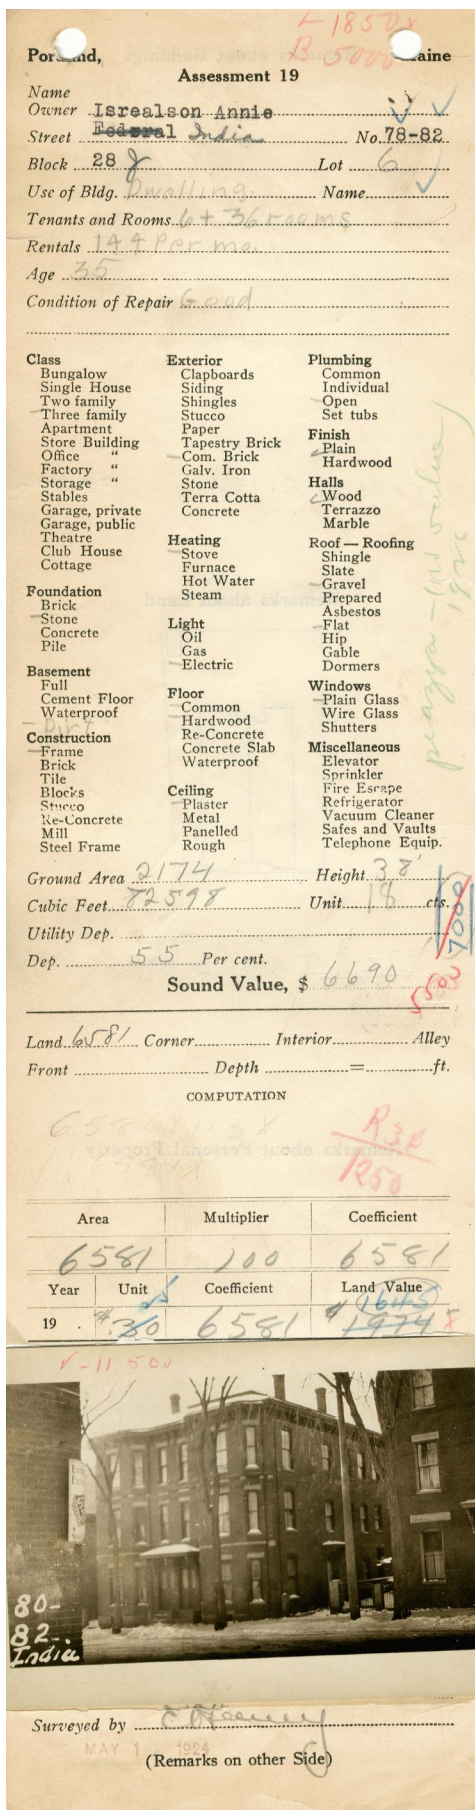 L 1850 x
B 5000
Portland, Maine
Assessment 19
Name
Owner Isrealson Annie
Street Federal India No. 78-82
Block 28 J Lot 6
Use of Bldg. Dwelling. Name
Tenants and Rooms 6 + 36 rooms
Rentals 144 Per mo.
Age 35
Condition of Repair Good
Class
Bungalow
Single House
Two family
Three family
Apartment
Store Building
Office "
Factory "
Storage "
Stables
Garage, private
Garage, public
Theatre
Club House
Cottage
Foundation
Brick
Stone
Concrete
Pile
Basement
Full
Cement Floor
Waterproof
- Dirt
Construction
Frame
Brick
Tile
Blocks
Stucco
Re-Concrete
Mill
Steel Frame
Exterior
Clapboards
Siding
Shingles
Stucco
Paper
Tapestry Brick
Com. Brick
Galv. Iron
Stone
Terra Cotta
Concrete
Heating
Stove
Furnace
Hot Water
Steam
Light
Oil
Gas
Electric
Floor
Common
Hardwood
Re-Concrete
Concrete Slab
Waterproof
Ceiling
Plaster
Metal
Panelled
Rough
Plumbing
Common
Individual
Open
Set tubs
Finish
Plain
Hardwood
Halls
Wood
Terrazzo
Marble
Roof — Roofing
Shingle
Slate
Gravel
Prepared
Asbestos
Flat
Hip
Gable
Dormers
Windows
Plain Glass
Wire Glass
Shutters
Miscellaneous
Elevator
Sprinkler
Fire Escape
Refrigerator
Vacuum Cleaner
Safes and Vaults
Telephone Equip.
piazza - (no value)
1926
Ground Area 2174 Height 38'
Cubic Feet 82598 Unit 18 cts.
7000
Utility Dep.
Dep. 55 Per cent.
5500
Sound Value, $ 6690
Land 6581 Corner Interior Alley
Front Depth = ft.
COMPUTATION
1250
Area Multiplier Coefficient
6581 100 6581
Year Unit Coefficient Land Value
25 1645
19 . $ .30 6581 $ 1974 x
V-11 500
80-
82-
India
Surveyed by
MAY 1 1924
(Remarks on other Side)